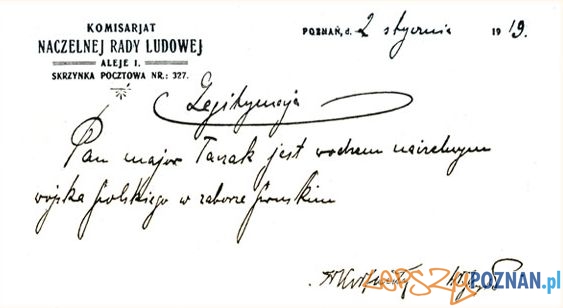 KOMISARJAT
NACZELNEJ RADY LUDOWEJ
ALEJE I.
SKRZYNKA POCZTOWA NR.: 327.
POZNAŃ, d. 2 stycznia 1919.
Legitymacja
Pan major Taczak jest wodzem naczelnym
wojska polskiego w zaborze pruskim
LEPSZYPOZNAN.pl